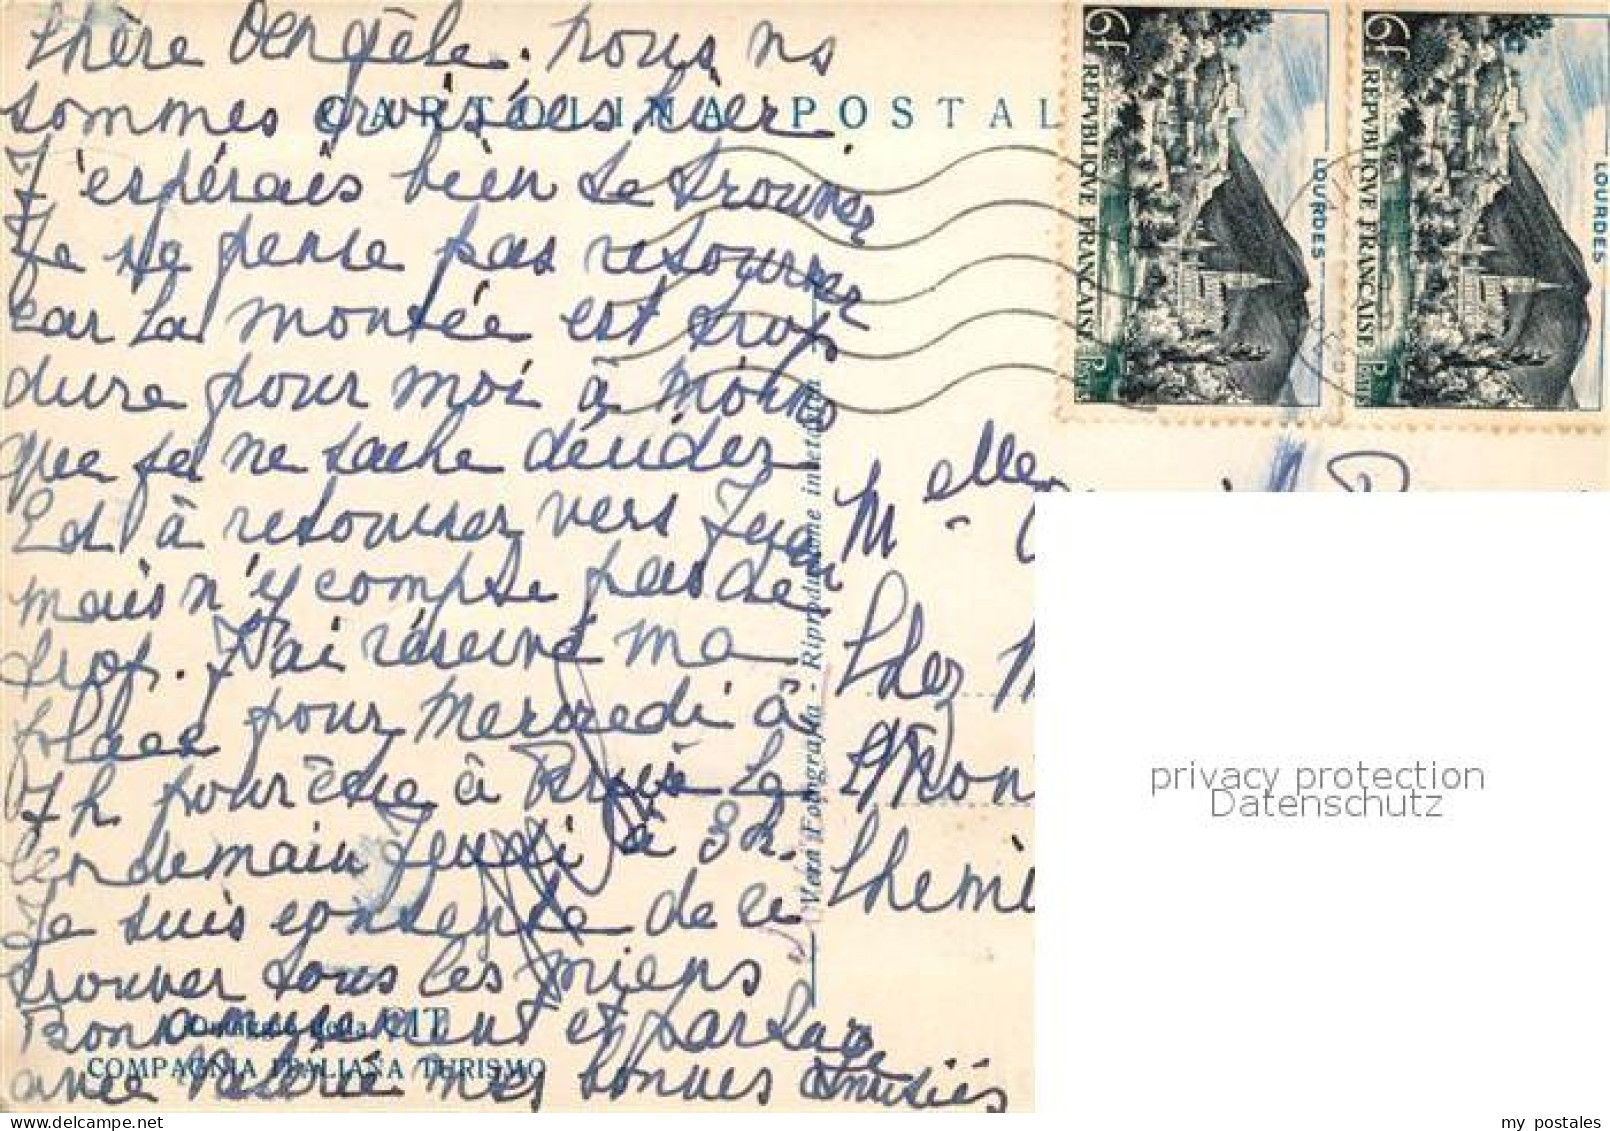 Chère Angèle. nous ns
sommes croisées hier
CARTOLINA POSTAL
J'espérais bien te trouver
Je ne pense pas retourner
car la montée est trop
dure pour moi à moins
que je ne sache décidez
Ed à retourner vers Jeu
mais n'y compte pas de
trop. J'ai réservé ma
place pour Mercredi à
7h pour être à Paris le
lendemain Jeudi à 3h.
Je suis contente de
trouver tous les miens
Bon amusement et
avec mes bonnes Amitiés
Omaggio della CIT
COMPAGNIA ITALIANA TURISMO
Vera Fotografia - Riproduzione interdetta
6f
REPVBLIQVE FRANÇAISE
POSTES
LOURDES
6f
REPVBLIQVE FRANÇAISE
POSTES
LOURDES
Melle
Chez M
Mon
Chemi
privacy protection
Datenschutz
my postales